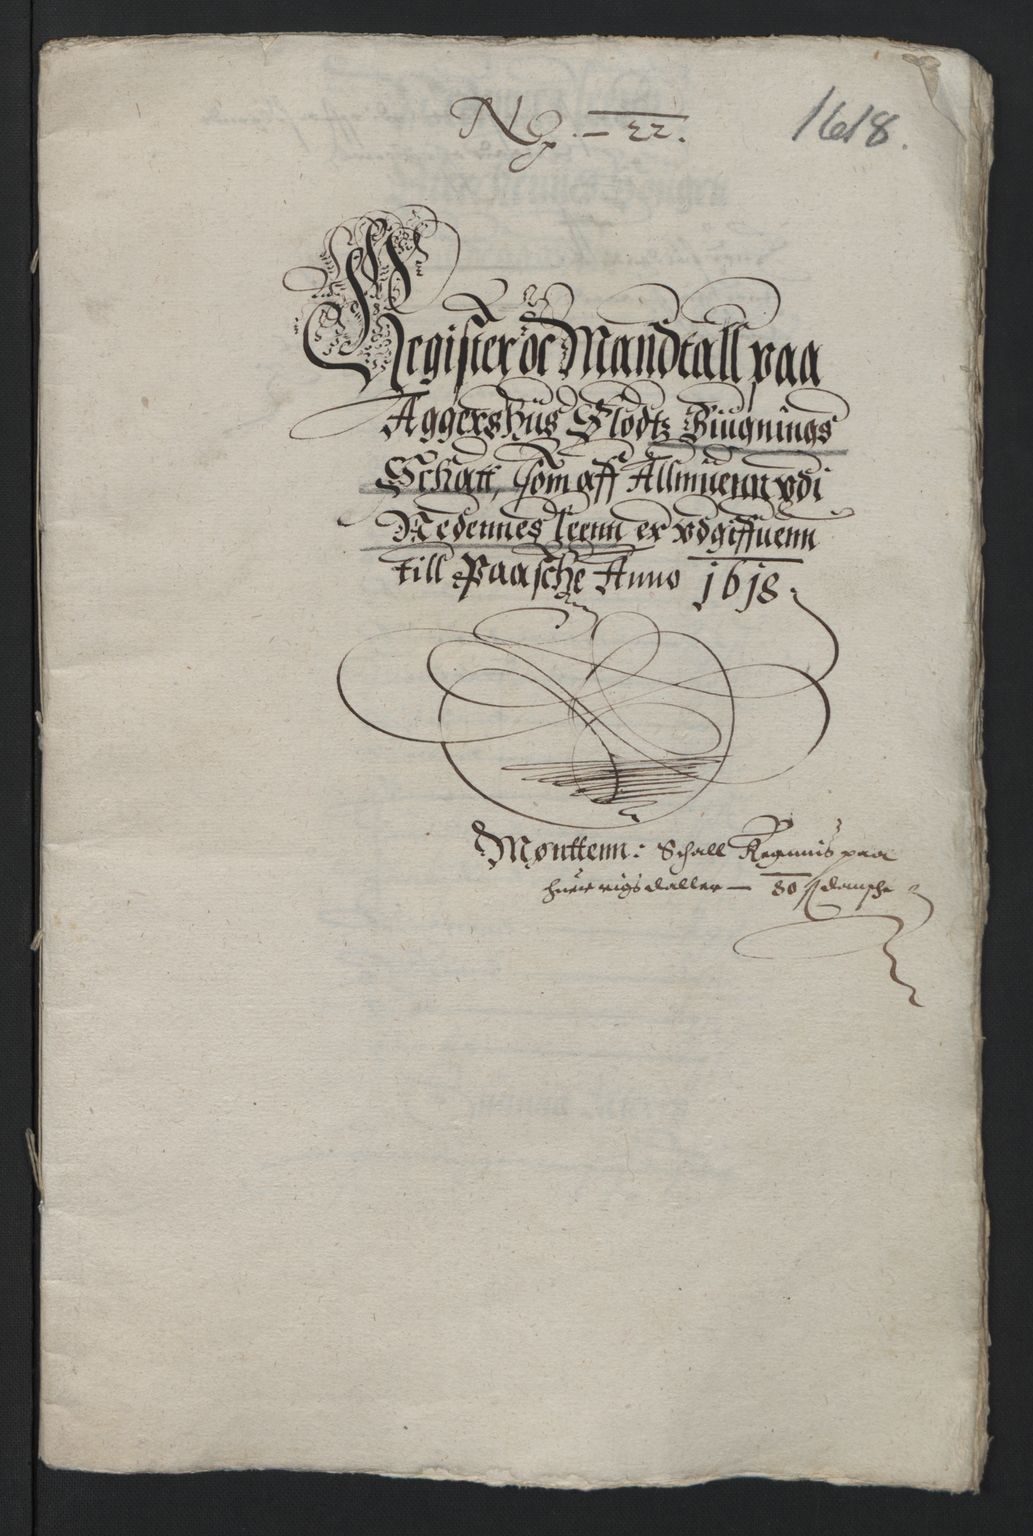 No. — 22.
1618.
Register oc Mandtall paa
Aggershus Slodtz Biugnings
Schatt, som aff Allmuenn vdi
Nedennes leenn er vdgiffuenn
till Paasche Anno 1618.
Mønttenn: Schall Regnnis paa
huer rigsdaller — 80 ß dansche